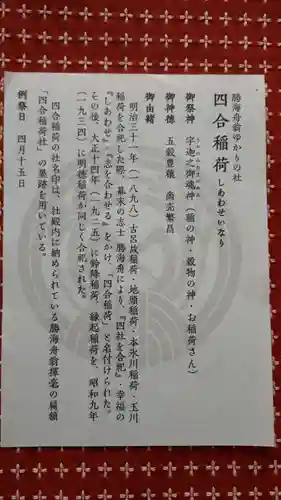 勝海舟翁ゆかりの社
四合稲荷 しあわせいなり
御祭神 宇迦之御魂神（稲の神・穀物の神・お稲荷さん）
うかのみたまのかみ
御神徳 五穀豊穣 商売繁昌
御由緒
明治三十一年（一八九八）古呂故稲荷・地頭稲荷・本氷川稲荷・玉川
稲荷を合祀した際、幕末の志士 勝海舟により、『四社を合祀』・幸福の
『しあわせ』・『志を合わせる』をかけ、「四合稲荷」と名付けられた。
その後、大正十四年（一九二五）に鈴降稲荷、縁起稲荷を、昭和九年
（一九三四）に明徳稲荷が同じく合祀された。
四合稲荷の社名印は、社殿内に納められている勝海舟翁揮毫の扁額
「四合稲荷社」の墨跡を用いている。
例祭日 四月十五日